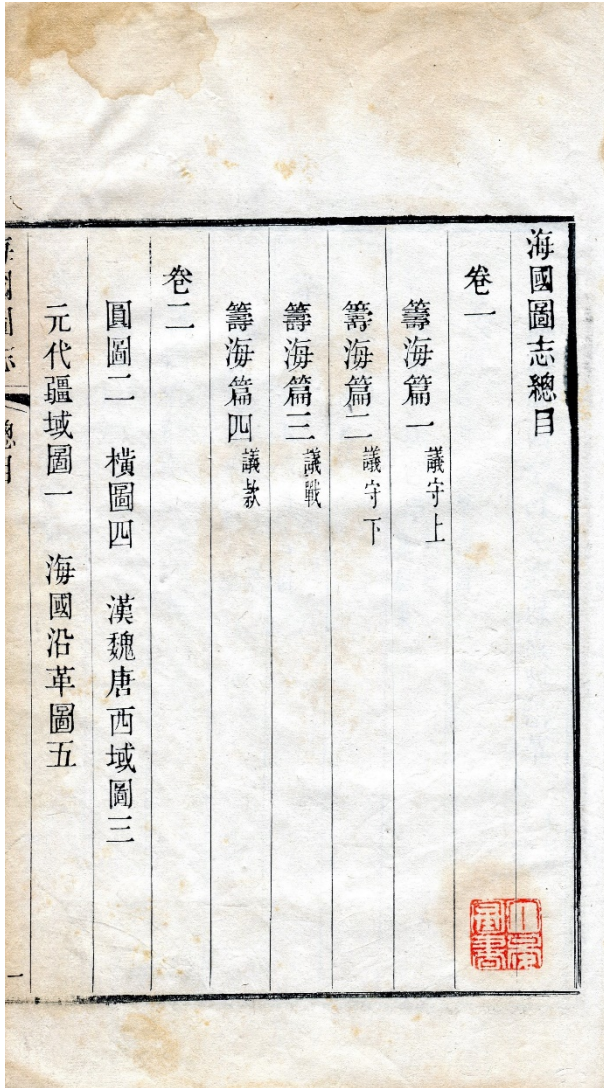 海國圖志總目
卷一
籌海篇一 議守上
籌海篇二 議守下
籌海篇三 議戰
籌海篇四 議款
卷二
圓圖二 橫圖四 漢魏唐西域圖三
元代疆域圖一 海國沿革圖五
海國圖志 總目 一